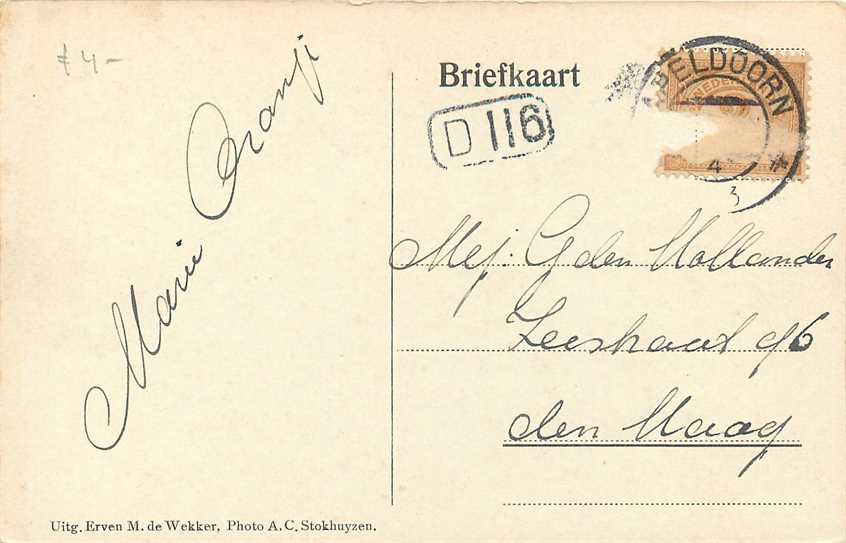 £ 4-
Briefkaart
APELDOORN
NEDE
4
3
D 116
Marie Oranji
Mej. G den Hollander
Zeestraat 96
den Haag
Uitg. Erven M. de Wekker, Photo A. C. Stokhuyzen.